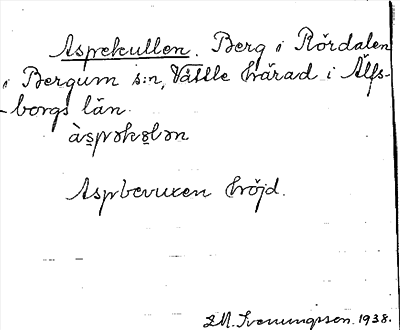 Aspekullen. Berg i Rördalen
i Bergum s:n, Vättle härad i Älfs-
borgs län.
àspəkɷlən
Aspbevuxen höjd.
S.M. Svenungsson. 1938.